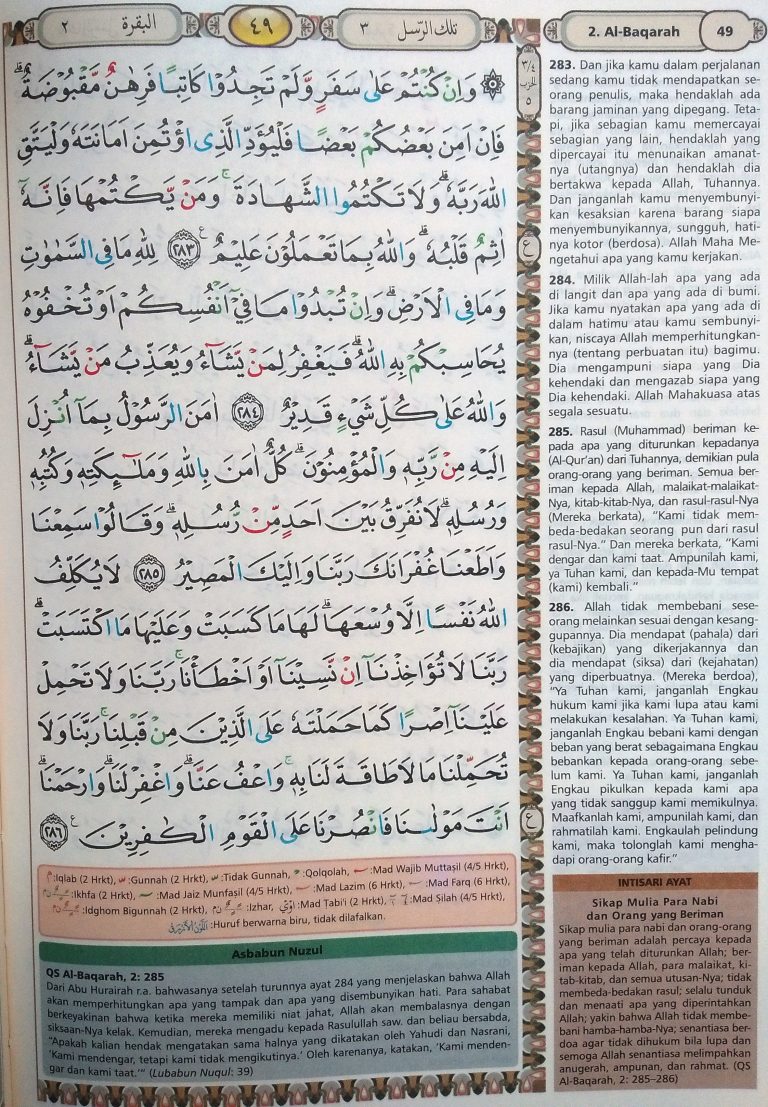 البقرة ٢
٤٩
تلك الرّسل ٣
2. Al-Baqarah
49
وَاِنْ كُنْتُمْ عَلٰى سَفَرٍ وَّلَمْ تَجِدُوْا كَاتِبًا فَرِهٰنٌ مَّقْبُوْضَةٌ ۗ
فَاِنْ اَمِنَ بَعْضُكُمْ بَعْضًا فَلْيُؤَدِّ الَّذِى اؤْتُمِنَ اَمَانَتَهٗ وَلْيَتَّقِ
اللّٰهَ رَبَّهٗ ۗ وَلَا تَكْتُمُوا الشَّهَادَةَ ۗ وَمَنْ يَّكْتُمْهَا فَاِنَّهٗٓ
اٰثِمٌ قَلْبُهٗ ۗ وَاللّٰهُ بِمَا تَعْمَلُوْنَ عَلِيْمٌ ࣖ ٢٨٣ لِلّٰهِ مَا فِى السَّمٰوٰتِ
وَمَا فِى الْاَرْضِ ۗ وَاِنْ تُبْدُوْا مَا فِيْٓ اَنْفُسِكُمْ اَوْ تُخْفُوْهُ
يُحَاسِبْكُمْ بِهِ اللّٰهُ ۗ فَيَغْفِرُ لِمَنْ يَّشَاۤءُ وَيُعَذِّبُ مَنْ يَّشَاۤءُ ۗ
وَاللّٰهُ عَلٰى كُلِّ شَيْءٍ قَدِيْرٌ ٢٨٤ اٰمَنَ الرَّسُوْلُ بِمَآ اُنْزِلَ
اِلَيْهِ مِنْ رَّبِّهٖ وَالْمُؤْمِنُوْنَ ۗ كُلٌّ اٰمَنَ بِاللّٰهِ وَمَلٰۤىِٕكَتِهٖ وَكُتُبِهٖ
وَرُسُلِهٖ ۗ لَا نُفَرِّقُ بَيْنَ اَحَدٍ مِّنْ رُّسُلِهٖ ۗ وَقَالُوْا سَمِعْنَا
وَاَطَعْنَا غُفْرَانَكَ رَبَّنَا وَاِلَيْكَ الْمَصِيْرُ ٢٨٥ لَا يُكَلِّفُ
اللّٰهُ نَفْسًا اِلَّا وُسْعَهَا ۗ لَهَا مَا كَسَبَتْ وَعَلَيْهَا مَا اكْتَسَبَتْ ۗ
رَبَّنَا لَا تُؤَاخِذْنَآ اِنْ نَّسِيْنَآ اَوْ اَخْطَأْنَا ۚ رَبَّنَا وَلَا تَحْمِلْ
عَلَيْنَآ اِصْرًا كَمَا حَمَلْتَهٗ عَلَى الَّذِيْنَ مِنْ قَبْلِنَا ۚ رَبَّنَا وَلَا
تُحَمِّلْنَا مَا لَا طَاقَةَ لَنَا بِهٖ ۚ وَاعْفُ عَنَّا ۗ وَاغْفِرْ لَنَا ۗ وَارْحَمْنَا ۗ
اَنْتَ مَوْلٰىنَا فَانْصُرْنَا عَلَى الْقَوْمِ الْكٰفِرِيْنَ ࣖ ٢٨٦
٣/٤
الحزب
٥
ع
ع
283. Dan jika kamu dalam perjalanan
sedang kamu tidak mendapatkan se-
orang penulis, maka hendaklah ada
barang jaminan yang dipegang. Teta-
pi, jika sebagian kamu memercayai
sebagian yang lain, hendaklah yang
dipercayai itu menunaikan amanat-
nya (utangnya) dan hendaklah dia
bertakwa kepada Allah, Tuhannya.
Dan janganlah kamu menyembunyi-
kan kesaksian karena barang siapa
menyembunyikannya, sungguh, hati-
nya kotor (berdosa). Allah Maha Me-
ngetahui apa yang kamu kerjakan.
284. Milik Allah-lah apa yang ada
di langit dan apa yang ada di bumi.
Jika kamu nyatakan apa yang ada di
dalam hatimu atau kamu sembunyi-
kan, niscaya Allah memperhitungkan-
nya (tentang perbuatan itu) bagimu.
Dia mengampuni siapa yang Dia
kehendaki dan mengazab siapa yang
Dia kehendaki. Allah Mahakuasa atas
segala sesuatu.
285. Rasul (Muhammad) beriman ke-
pada apa yang diturunkan kepadanya
(Al-Qur'an) dari Tuhannya, demikian pula
orang-orang yang beriman. Semua ber-
iman kepada Allah, malaikat-malaikat-
Nya, kitab-kitab-Nya, dan rasul-rasul-Nya
(Mereka berkata), "Kami tidak mem-
beda-bedakan seorang pun dari rasul
rasul-Nya." Dan mereka berkata, "Kami
dengar dan kami taat. Ampunilah kami,
ya Tuhan kami, dan kepada-Mu tempat
(kami) kembali."
286. Allah tidak membebani sese-
orang melainkan sesuai dengan kesang-
gupannya. Dia mendapat (pahala) dari
(kebajikan) yang dikerjakannya dan
dia mendapat (siksa) dari (kejahatan)
yang diperbuatnya. (Mereka berdoa),
"Ya Tuhan kami, janganlah Engkau
hukum kami jika kami lupa atau kami
melakukan kesalahan. Ya Tuhan kami,
janganlah Engkau bebani kami dengan
beban yang berat sebagaimana Engkau
bebankan kepada orang-orang sebe-
lum kami. Ya Tuhan kami, janganlah
Engkau pikulkan kepada kami apa
yang tidak sanggup kami memikulnya.
Maafkanlah kami, ampunilah kami, dan
rahmatilah kami. Engkaulah pelindung
kami, maka tolonglah kami mengha-
dapi orang-orang kafir."
:Iqlab (2 Hrkt), :Gunnah (2 Hrkt), :Tidak Gunnah, :Qolqolah, :Mad Wajib Muttaṣil (4/5 Hrkt),
:Ikhfa (2 Hrkt), :Mad Jaiz Munfaṣil (4/5 Hrkt), :Mad Lazim (6 Hrkt), :Mad Farq (6 Hrkt),
:Idghom Bigunnah (2 Hrkt), :Izhar, :Mad Tabi'i (2 Hrkt), :Mad Ṣilah (4/5 Hrkt),
:Huruf berwarna biru, tidak dilafalkan.
Asbabun Nuzul
QS Al-Baqarah, 2: 285
Dari Abu Hurairah r.a. bahwasanya setelah turunnya ayat 284 yang menjelaskan bahwa Allah
akan memperhitungkan apa yang tampak dan apa yang disembunyikan hati. Para sahabat
berkeyakinan bahwa ketika mereka memiliki niat jahat, Allah akan membalasnya dengan
siksaan-Nya kelak. Kemudian, mereka mengadu kepada Rasulullah saw. dan beliau bersabda,
"Apakah kalian hendak mengatakan sama halnya yang dikatakan oleh Yahudi dan Nasrani,
'Kami mendengar, tetapi kami tidak mengikutinya.' Oleh karenanya, katakan, 'Kami menden-
gar dan kami taat.'" (Lubabun Nuqul: 39)
INTISARI AYAT
Sikap Mulia Para Nabi
dan Orang yang Beriman
Sikap mulia para nabi dan orang-orang
yang beriman adalah percaya kepada
apa yang telah diturunkan Allah; ber-
iman kepada Allah, para malaikat, ki-
tab-kitab, dan semua utusan-Nya; tidak
membeda-bedakan rasul; selalu tunduk
dan menaati apa yang diperintahkan
Allah; yakin bahwa Allah tidak membe-
bani hamba-hamba-Nya; senantiasa ber-
doa agar tidak dihukum bila lupa dan
semoga Allah senantiasa melimpahkan
anugerah, ampunan, dan rahmat. (QS
Al-Baqarah, 2: 285–286)